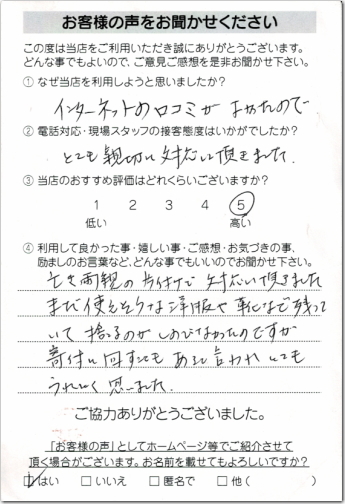 お客様の声をお聞かせください
この度は当店をご利用いただき誠にありがとうございます。
どんな事でもよいので、ご意見ご感想を是非お聞かせ下さい。
① なぜ当店を利用しようと思いましたか?
インターネットの口コミが よかったので
② 電話対応・現場スタッフの接客態度はいかがでしたか?
とても親切に対応して頂きました.
③ 当店のおすすめ評価はどれくらいございますか?
1 2 3 4 5
低い 高い
④ 利用して良かった事・嬉しい事・ご感想・お気づきの事、
励ましのお言葉など、どんな事でもいいのでお聞かせ下さい。
亡き両親の片付けで 対応して頂きました
まだ使えそうな洋服や靴など残って
いて捨てるのが しのびなかったのですが
寄付に回すこともあると言われ とても
うれしく思いました.
ご協力ありがとうございました。
「お客様の声」としてホームページ等でご紹介させて
頂く場合がございます。お名前を載せてもよろしいですか?
はい □ いいえ □ 匿名で □ 他( )